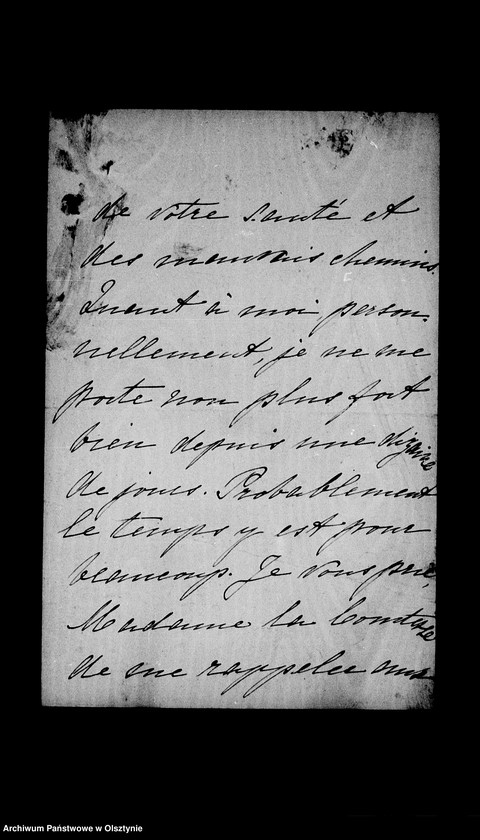 de votre santé et
des mauvais chemins.
Quant à moi person-
nellement, je ne me
porte non plus fort
bien depuis une dizaine
de jours. Probablement
le temps y est pour
beaucoup. Je vous prie,
Madame la Comtesse
de me rappeler aux
Archiwum Państwowe w Olsztynie